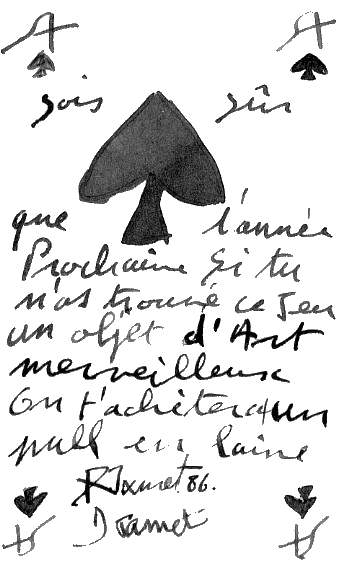 A A
sois sûr
que l'année
Prochaine si tu
n'as trouvé ce Jeu
un objet d'Art
merveilleux
On t'achètera un
pull en laine
86.
A A